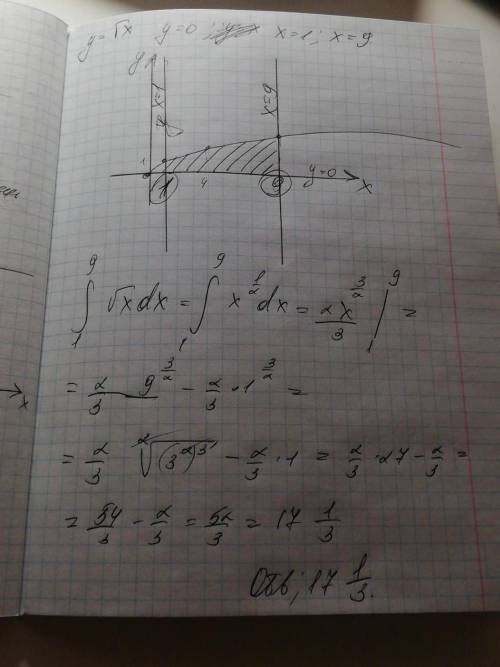 y=√x y=0; x=1; x=9
y
x=1
x=9
1
1 4 9 y=0
x
∫₁⁹ √x dx = ∫₁⁹ x^(1/2) dx = 2x^(3/2)/3 |₁⁹ =
= 2/3 · 9^(3/2) − 2/3 · 1^(3/2) =
= 2/3 ²√(3²)³ − 2/3 · 1 = 2/3 · 27 − 2/3 =
= 54/3 − 2/3 = 52/3 = 17 1/3
Отв; 17 1/3.
x